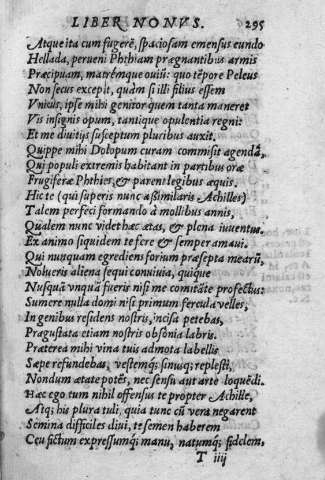 LIBER NONVS. 295
Atque ita cum fugerē, spaciosam emensus eundo
Hellada, perueni Phthiam prægnantibus armis
Præcipuam, matrémque ouiū: quo tēpore Peleus
Non secus excepit, quàm si illi filius essem
Vnicus, ipse mihi genitor quem tanta maneret
Vis insignis opum, tantique opulentia regni:
Et me diuitijs susceptum pluribus auxit.
Quippe mihi Dolopum curam commisit agendā,
Qui populi extremis habitant in partibus oræ
Frugiferæ Phthies, & parent legibus æquis.
Hic te (qui superis nunc aßimilaris Achilles)
Talem perfeci formando à mollibus annis,
Qualem nunc videt hæc ætas, & plena iuuentus.
Ex animo siquidem te fere & semper amaui.
Qui nunquam egrediens foriùm præsepta mearū,
Nolueris aliena sequi conuiuia, quique
Nusquā vnquā fueris nisi me comitāte profectus:
Sumere nulla domi nisi primum fercula velles,
In genibus residens nostris, incisa petebas,
Prægustata etiam nostris obsonia labris.
Præterea mihi vina tuis admota labellis
Sæpe refundebas, vestemq; sinusq; replesti,
Nondum ætate potēs, nec sensu aut arte loquēdi.
Hæc ego tum nihil offensus te propter Achille,
Atq; his plura tuli, quia tunc cū vera negarent
Semina difficiles diui, te semen haberem
Ceu fictum expressumq; manu, natumq; fidelem,
T iiij